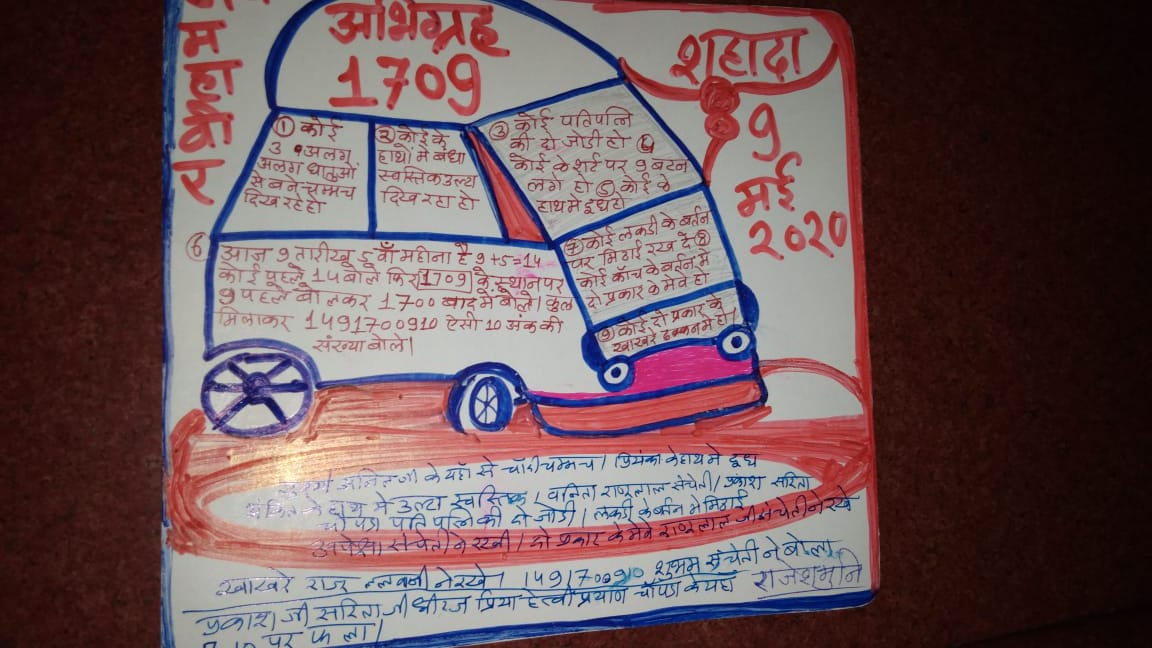 महा
अभिग्रह
1709
शहादा
9
मई
2020
① कोई
3 अलग
अलग धातुओं
से बने चम्मच
दिख रहे हो
② कोई के
हाथों में बंधा
स्वस्तिक उल्टा
दिख रहा हो
③ कोई पतिपत्नि
की दो जोडी हो ④
कोई के शर्ट पर 9 बटन
लगे हो ⑤ कोई के
हाथ में दूध हो
⑥ आज 9 तारीख 5 वाँ महीना है 9+5=14
कोई पहले 14 बोले फिर 1709 के स्थान पर
9 पहले बोलकर 1700 बाद में बोले। कुल
मिलाकर 1491700910 ऐसी 10 अंक की
संख्या बोले।
⑦ कोई लकडी के बर्तन
पर मिठाई रख दे ⑧
कोई काँच के बर्तन मे
दो प्रकार के मेवे हो
⑨ कोई दो प्रकार के
खाखरे ढक्कन मे हो।
अनिल जी के यहाँ से चाँदी चम्मच। प्रियंका के हाथ मे दूध
के हाथ मे उल्टा स्वस्तिक। वनिता राजूलाल संचेती। प्रकाश सरिता
चोपडा पति पत्नि की दो जोडी। लकडी के बर्तन मे मिठाई
अपेक्षा संचेती ने रखी। दो प्रकार के मेवे राजूलाल जी संचेती ने रखे
खाखरे राजू ने रखे। 1491700910 शुभम संचेती ने बोला
प्रकाश जी सरिता जी धीरज प्रिया हेत्वी प्रयाण चोपडा के यहाँ राजेशमुनि
पर फला।